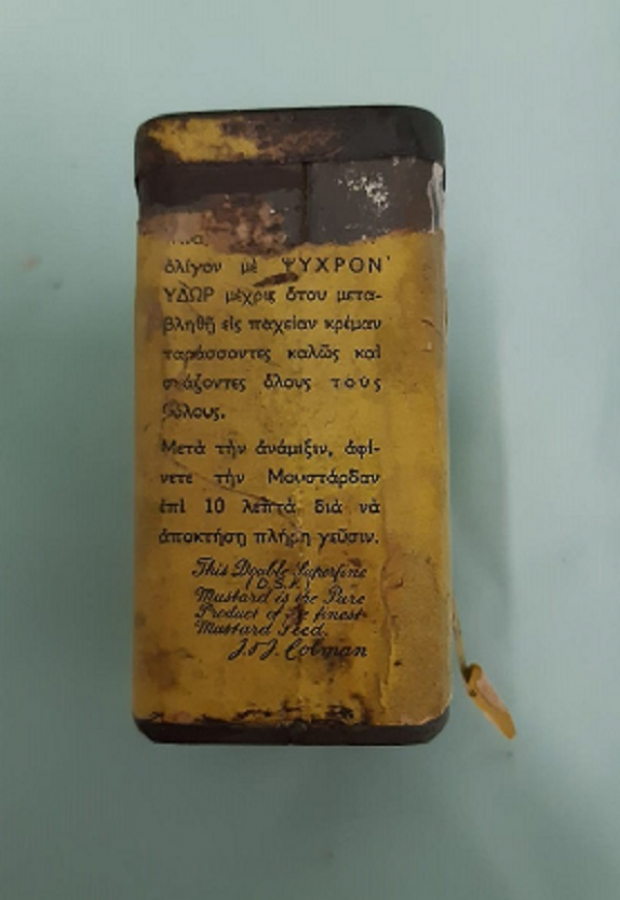 ὀλίγον μὲ ΨΥΧΡΟΝ
ΥΔΩΡ μέχρις ὅτου μετα-
βληθῇ εἰς παχεῖαν κρέμαν
ταράσσοντες καλῶς καὶ
σπάζοντες ὅλους τοὺς
βόλους.
Μετὰ τὴν ἀνάμιξιν, ἀφί-
νετε τὴν Μουστάρδαν
ἐπὶ 10 λεπτὰ διὰ νὰ
ἀποκτήσῃ πλήρη γεῦσιν.
This Double Superfine
(D.S.F.)
Mustard is the Pure
Product of the finest
Mustard Seed.
J. & J. Colman